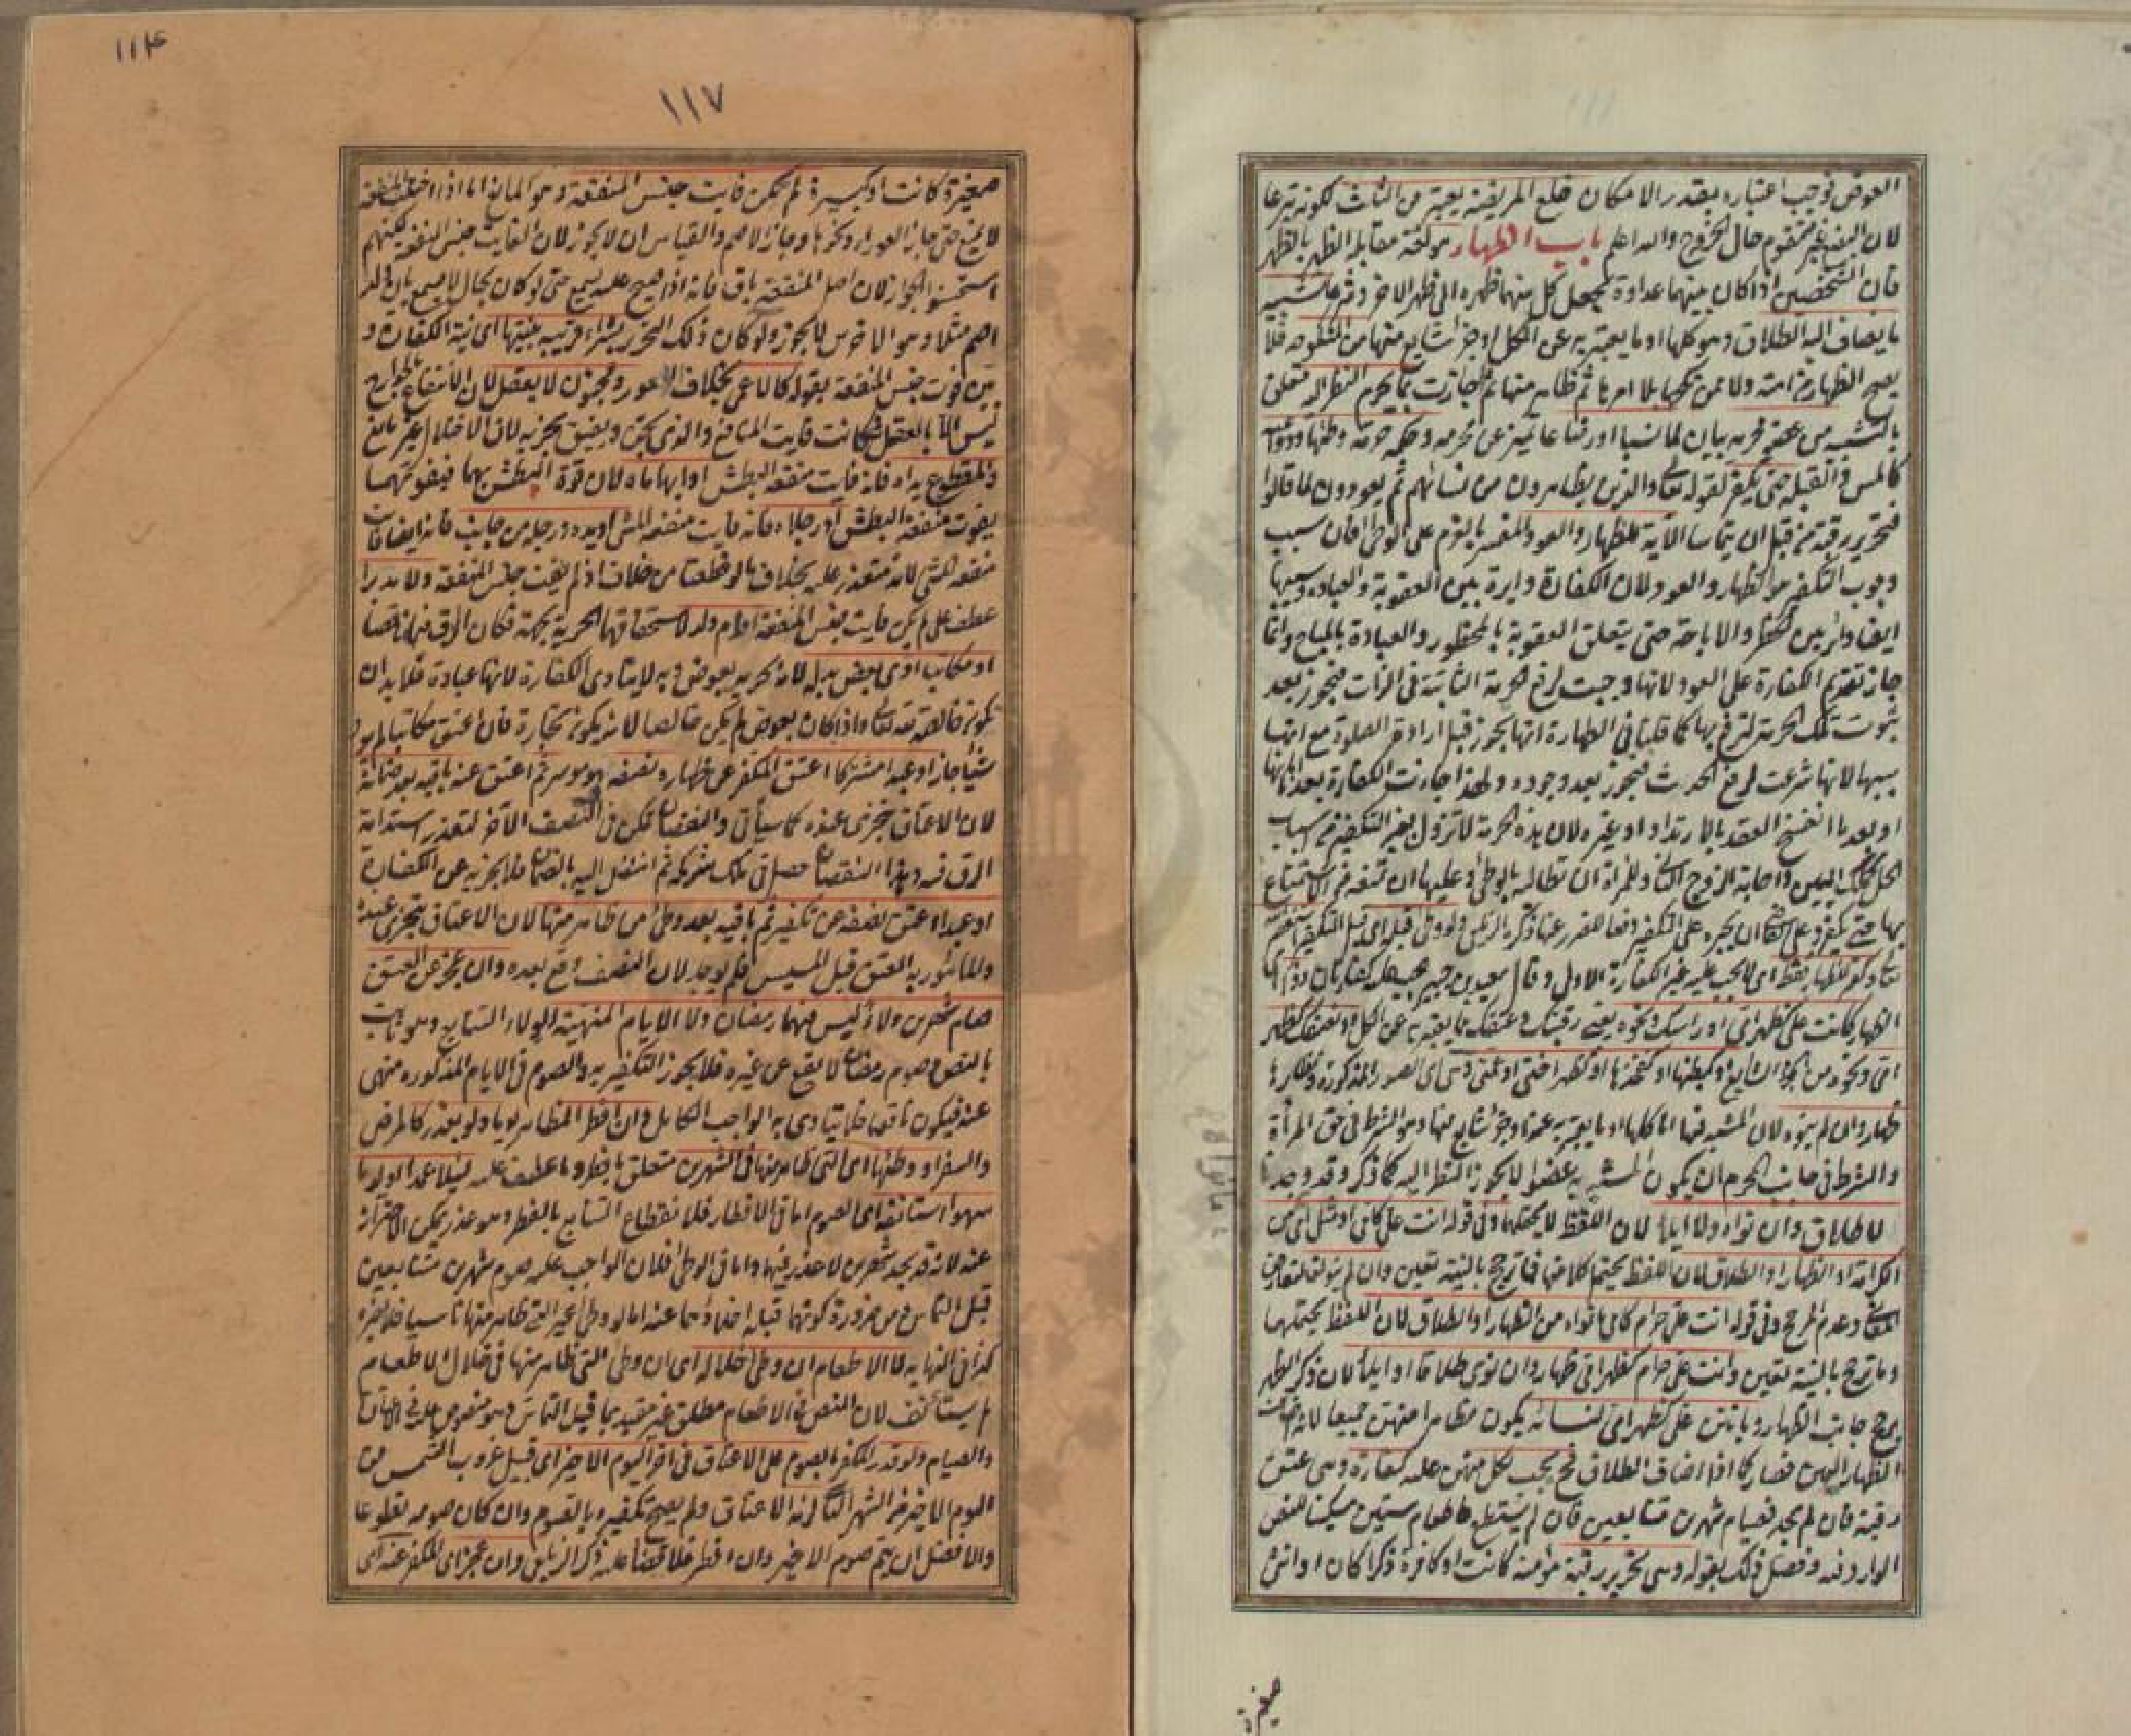 العوض فوجب اعتباره بقدر الامكان خلع المريضة يعتبر من الثلث لكونه تبرعا
لان البضع غير متقوم حال الخروج والله اعلم باب الظهار هو لغة مقابلة الظهر بالظهر
فان الشخصين اذا كان بينهما عداوة يجعل كل منهما ظهره الى ظهر الاخر وشرعا تشبيه
ما يضاف اليه الطلاق وهو كلها او ما يعبر به عن الكل او جزء شايع منها من المنكوحة فلا
يصح الظهار من امته ولا ممن نكحها بلا امرها ثم ظاهر منها ثم اجازت بما يحرم النظر اليه متعلق
بالتشبيه من عضو محرمه بيان لما نسبا او رضاعا تمييز عن محرمه وحكمه حرمة وطئها ودواعيه
كالمس والقبلة حتى يكفر لقوله تعالى والذين يظاهرون من نسائهم ثم يعودون لما قالوا
فتحرير رقبة من قبل ان يتماسا الآية للظهار والعود المفسر بالعزم على الوطئ فان سبب
وجوب التكفير هو الظهار والعود لان الكفارة دايرة بين العقوبة والعبادة وسببها
ايضا دائر بين الحظر والاباحة حتى يتعلق العقوبة بالمحظور والعبادة بالمباح وانما
جاز تقديم الكفارة على العود لانها وجبت لرفع الحرمة الثابتة في الذات فيجوز بعد
ثبوت تلك الحرمة لترتفع بها كما قلنا في الطهارة انها يجوز قبل ارادة الصلوة مع انها
سببها لانها شرعت لرفع الحدث فيجوز بعد وجوده ولهذا جازت الكفارة بعد ابانتها
او بعد ما انفسخ العقد بالارتداد او غيره لان هذه الحرمة لا تزول بغير التكفير من اسباب
الحل كملك اليمين واصابة الزوج الثاني وللمرأة ان تطالبه بالوطئ وعليها ان تمنعه من الاستمتاع
بها حتى يكفر وعلى القاضي ان يجبره على التكفير دفعا للضرر عنها ذكره الزيلعي ولو وطئ قبله اى قبل التكفير استغفر
تعالى وكفر للظهار فقط اى لا يجب عليه غير الكفارة الاولى وقال سعيد بن جبير يجب عليه كفارتان
الظهار كانت على كظهر امى او رأسك ونحوه يعنى رقبتك وعنقك مما يعبر به عن الكل او نصفك كظهر
امى ونحوه من الجزء الشايع او كبطنها او كفخذها او كظهر اختى او عمتى وهى اى الصور المذكورة ونظايرها
ظهار وان لم ينوه لان المشبه فيها اما كلها او ما يعبر به عنها او جزء شايع منها وهو الشرط في حق المرأة
والشرط في جانب المحرم ان يكون المشبه به عضوا لا يجوز النظر اليه كما ذكر وقد وجدا
لا طلاق وان نواه ولا ايلاء لان اللفظ لا يحتملها وفى قوله انت على كامى او مثل امى من
الكرامة او الظهار او الطلاق لان اللفظ يحتمل كلا منها فما ترجح بالنية تعين وان لم ينو لغا لتعارض
المعانى وعدم المرجح وفى قوله انت على حرام كامى ما نواه من الظهار او الطلاق لان اللفظ يحتملهما
وما ترجح بالنية تعين وانت على حرام كظهر امى ظهار وان نوى طلاقا او ايلاء لان ذكر الظهر
يرجح جانب الظهار وبانتن على كظهر امى لنسائه يكون مظاهرا منهن جميعا لانه اضاف
الظهار اليهن فصار كما اذا اضاف الطلاق فح يجب لكل منهن عليه كفارة وهى عتق
رقبة فان لم يجد فصيام شهرين متتابعين فان لم يستطع فاطعام ستين مسكينا للنص
الوارد فيه وفصل ذلك بقوله وهى تحرير رقبة مؤمنة كانت او كافرة ذكرا كان او انثى
١١٤
١١٧
صغيرة كانت او كبيرة لم يكن فايت جنس المنفعة وهو المانع اما اذا اختلت المنفعة
لا يمنع حتى جاز العوراء ونحوها وجاز الاصم والقياس ان لا يجوز لان الفايت جنس المنفعة لكنهم
استحسنوا الجواز لان اصل المنفعة باق فانه اذا صيح عليه يسمع حتى لو كان بحال لا يسمع بان ولد
اصم مثلا وهو الاخرس لا يجوز ولو كان ذلك التحرير بشراء قريبه بنيتها اى نية الكفارة و
بين فوت جنس المنفعة بقوله كالاعمى بخلاف الاعور ومجنون لا يعقل لان الانتفاع بالجوارح
ليس الا بالعقل فكانت فايت المنافع والذى يجن ويفيق يجزيه لان الاختلال غير مانع
والمقطوع يداه فانه فايت منفعة البطش او ابهاماه لان قوة البطش بهما فبفوتهما
يفوت منفعة البطش او رجلاه فانه فايت منفعة المشى او يده ورجله من جانب فانه ايضا فايت
منفعة المشى لانه متعذر عليه بخلاف ما لو قطعتا من خلاف اذ لم يفت جنس المنفعة ولا مدبرا
عطف على لم يكن فايت جنس المنفعة او ام ولد لاستحقاقهما الحرية بجهة فكان الرق فيهما ناقصا
او مكاتبا ادى بعض بدله لانه تحرير بعوض وبه لا يتادى الكفارة لانها عبادة فلا بد ان
تكون خالصة لله تعالى واذا كان بعوض لم يكن خالصا لانه يكون تجارة فان اعتق مكاتبا لم يود
شيئا جاز او عبدا مشتركا اعتق المكفر عن ظهاره نصفه وهو موسر ثم اعتق عنه باقيه بعد ضمانه
لان الاعتاق يتجزى عنده كما سيأتى والنقصان تمكن فى النصف الآخر لتعذر استدامة
الرق فيه وهذا النقصان حصل فى ملك شريكه ثم انتقل اليه بالضمان فلا يجزيه عن الكفارة
او عبدا اعتق نصفه عن تكفيره ثم باقيه بعد وطئ من ظاهر منها لان الاعتاق يتجزى عنده
والمأمور به العتق قبل المسيس فلم يوجد لان النصف وقع بعده وان عجز عن العتق
صام شهرين ولاء ليس فيهما رمضان ولا الايام المنهية الولاء التتابع وهو ثابت
بالنص وصوم رمضان لا يقع عن غيره فلا يجوز التكفير به والصوم فى الايام المذكورة منهى
عنه فيكون ناقصا فلا يتادى به الواجب الكامل وان افطر المظاهر يوما ولو بعذر كالمرض
والسفر او وطئها اى التى ظاهر منها فى الشهرين متعلق بافطر وما عطف عليه ليلا عمدا او يوما
سهوا استانفه اى الصوم اما فى الافطار فلانقطاع التتابع بالفطر وهو عذر يمكن الاحتراز
عنه لانه قد يجد شهرين لا عذر فيهما واما فى الوطئ فلان الواجب عليه صوم شهرين متتابعين
قبل التماس ومن ضرورة كونهما قبله اخلاؤهما عنه اما لو وطئ غير التى ظاهر منها ناسيا فلا يضره
كذا فى النهاية لا الاطعام ان وطئ خلاله اى ان وطئ التى ظاهر منها فى خلال الاطعام
لم يستأنف لان النص فى الاطعام مطلق غير مقيد بما قبل التماس وهو منصوص عليه فى الاعتاق
والصيام ولو قدر المكفر بالصوم على الاعتاق فى آخر اليوم الاخير اى قبيل غروب الشمس من
اليوم الاخير من الشهر الثانى لزمه الاعتاق ولم يصح تكفيره بالصوم وان كان صومه تطوعا
والافضل ان يتم صوم الاخير وان افطر فلا قضاء عليه ذكره الزيلعى وان عجز اى المكفر عنه اى
صغيرة